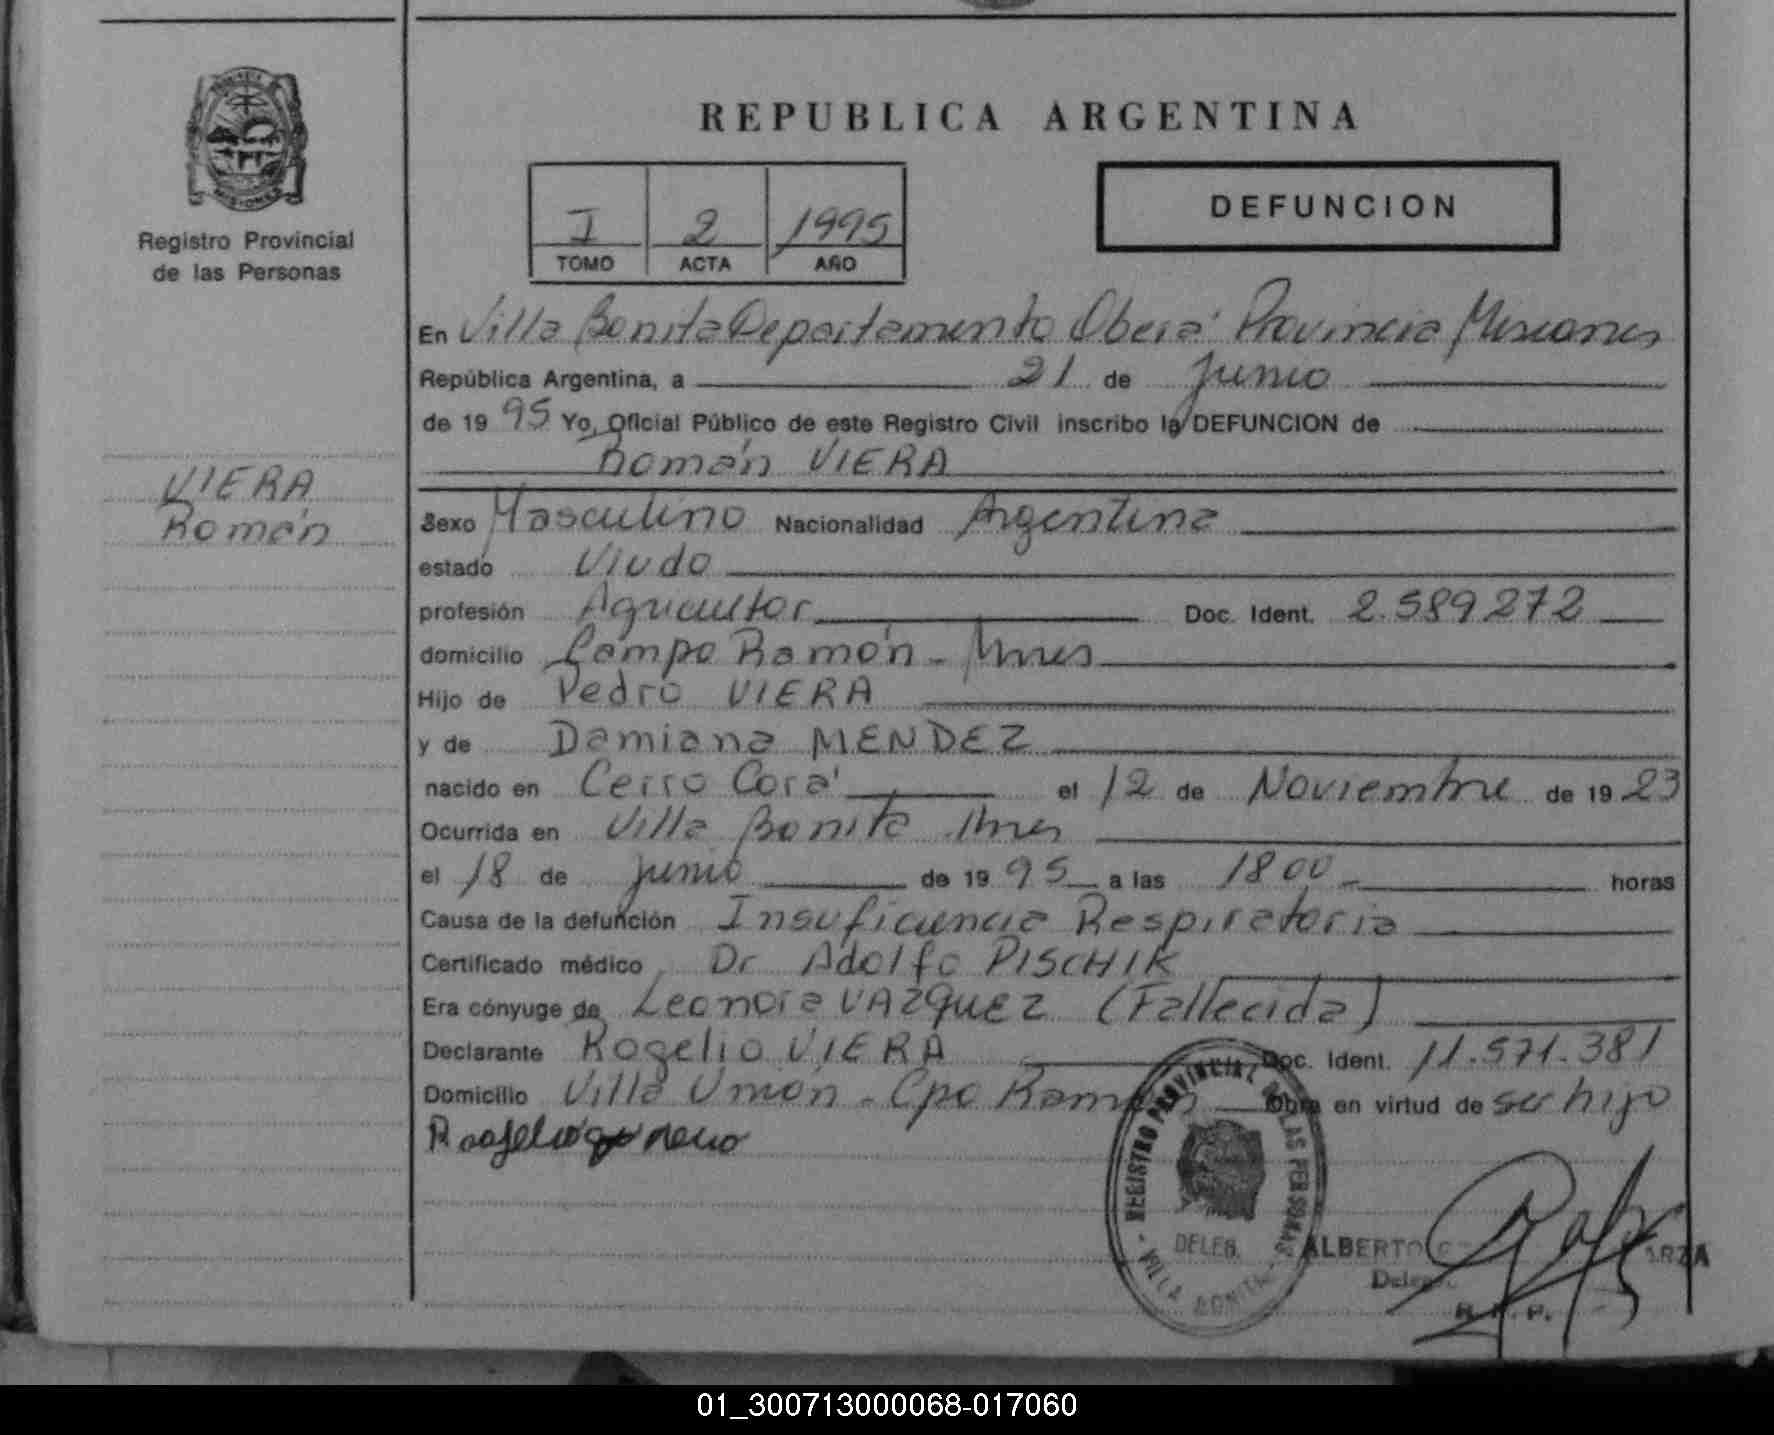 REPUBLICA ARGENTINA
Registro Provincial
de las Personas
I 2 1995
TOMO ACTA AÑO
DEFUNCION
En Villa Bonita Departamento Oberá Provincia Misiones
República Argentina, a 21 de Junio
de 1995 Yo, Oficial Público de este Registro Civil inscribo la DEFUNCION de
Román VIERA
VIERA
Román
Sexo Masculino Nacionalidad Argentina
estado Viudo
profesión Agricultor Doc. Ident. 2.589272
domicilio Campo Ramón - Mnes
Hijo de Pedro VIERA
y de Damiana MENDEZ
nacido en Cerro Corá el 12 de Noviembre de 1923
Ocurrida en Villa Bonita Mnes
el 18 de Junio de 1995 a las 1800 horas
Causa de la defunción Insuficiencia Respiratoria
Certificado médico Dr Adolfo PISCHIK
Era cónyuge de Leonora VAZQUEZ (Fallecida)
Declarante Rogelio VIERA Doc. Ident. 11.571.381
Domicilio Villa Unión - Cpo Ramón Obra en virtud de su hijo
REGISTRO PROVINCIAL DE LAS PERSONAS
DELEG.
VILLA BONITA
ALBERTO
R. P.
01_300713000068-017060